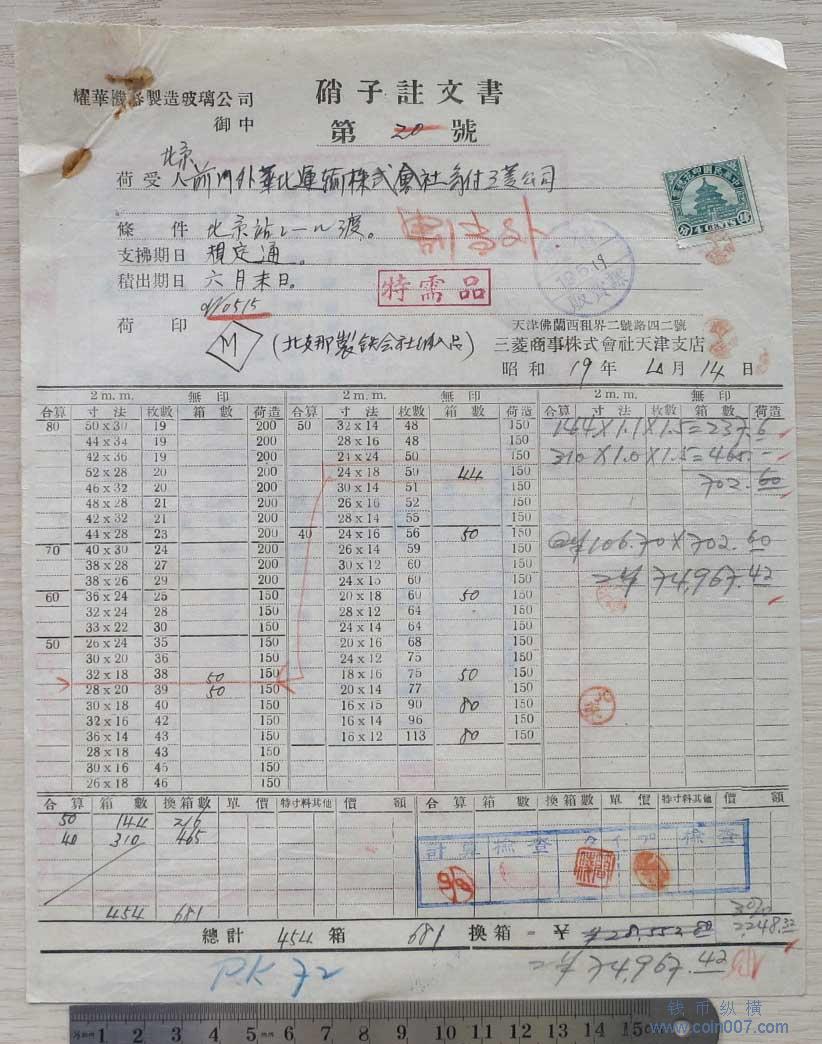 硝子註文書
耀華機器製造玻璃公司
御中
第 20 號
北京
荷受人 前門外華北運輸株式會社気付三菱公司
條件 北京站レール渡。
割当外
支拂期日 規定通。
積出期日 六月末日。
特需品
19.5.19
荷印
M
天津佛蘭西租界二號路四二號
三菱商事株式會社天津支店
昭和 19年 4月 14日
4 CENTS
2 m.m. 無印 2 m.m. 無印 2 m.m. 無印
合算 寸法 枚數 箱數 荷造 合算 寸法 枚數 箱數 荷造 合算 寸法 枚數 箱數 荷造
80 50 x 30 19 200 50 32 x 14 48 150 164×1.1×1.5=237.6
44 x 34 19 200 28 x 16 48 150
42 x 36 19 200 24 x 24 50 150 310×1.0×1.5=465.-
52 x 28 20 200 24 x 18 50 44 150 702.60
46 x 32 20 200 30 x 14 51 150
48 x 28 21 200 26 x 16 52 150
42 x 32 21 200 28 x 14 55 150
44 x 28 23 200 40 24 x 16 56 50 150 @¥106.70×702.60
70 40 x 30 24 200 26 x 14 59 150
38 x 28 27 200 30 x 12 60 150 =¥74,967.42
38 x 26 29 200 24 x 15 60 150
60 36 x 24 25 150 20 x 18 60 50 150
32 x 24 28 150 28 x 12 64 150
33 x 22 30 150 24 x 14 64 150
50 26 x 24 35 150 20 x 16 68 150
30 x 20 36 150 24 x 12 75 150
32 x 18 38 50 150 18 x 16 75 50 150
28 x 20 39 50 150 20 x 14 77 150
30 x 18 40 150 16 x 15 90 80 150
32 x 16 42 150 16 x 14 96 150
36 x 14 43 150 16 x 12 113 80 150
28 x 18 43 150
30 x 16 45 150
26 x 18 46 150
合算 箱數 換箱數 單價 特寸料其他 價額 合算 箱數 換箱數 單價 特寸料其他 價額
50 144 216
40 310 465
計算 検査 タイプ 検査
454 681
30%
2248.32
總計 454 箱 681 換箱 = ¥ ¥28,552.80
=¥74,967.42
P.K 72
1 2 3 4 5 6 7 8 9 10 11 12 13 14 15
钱币纵横
www.coin007.com